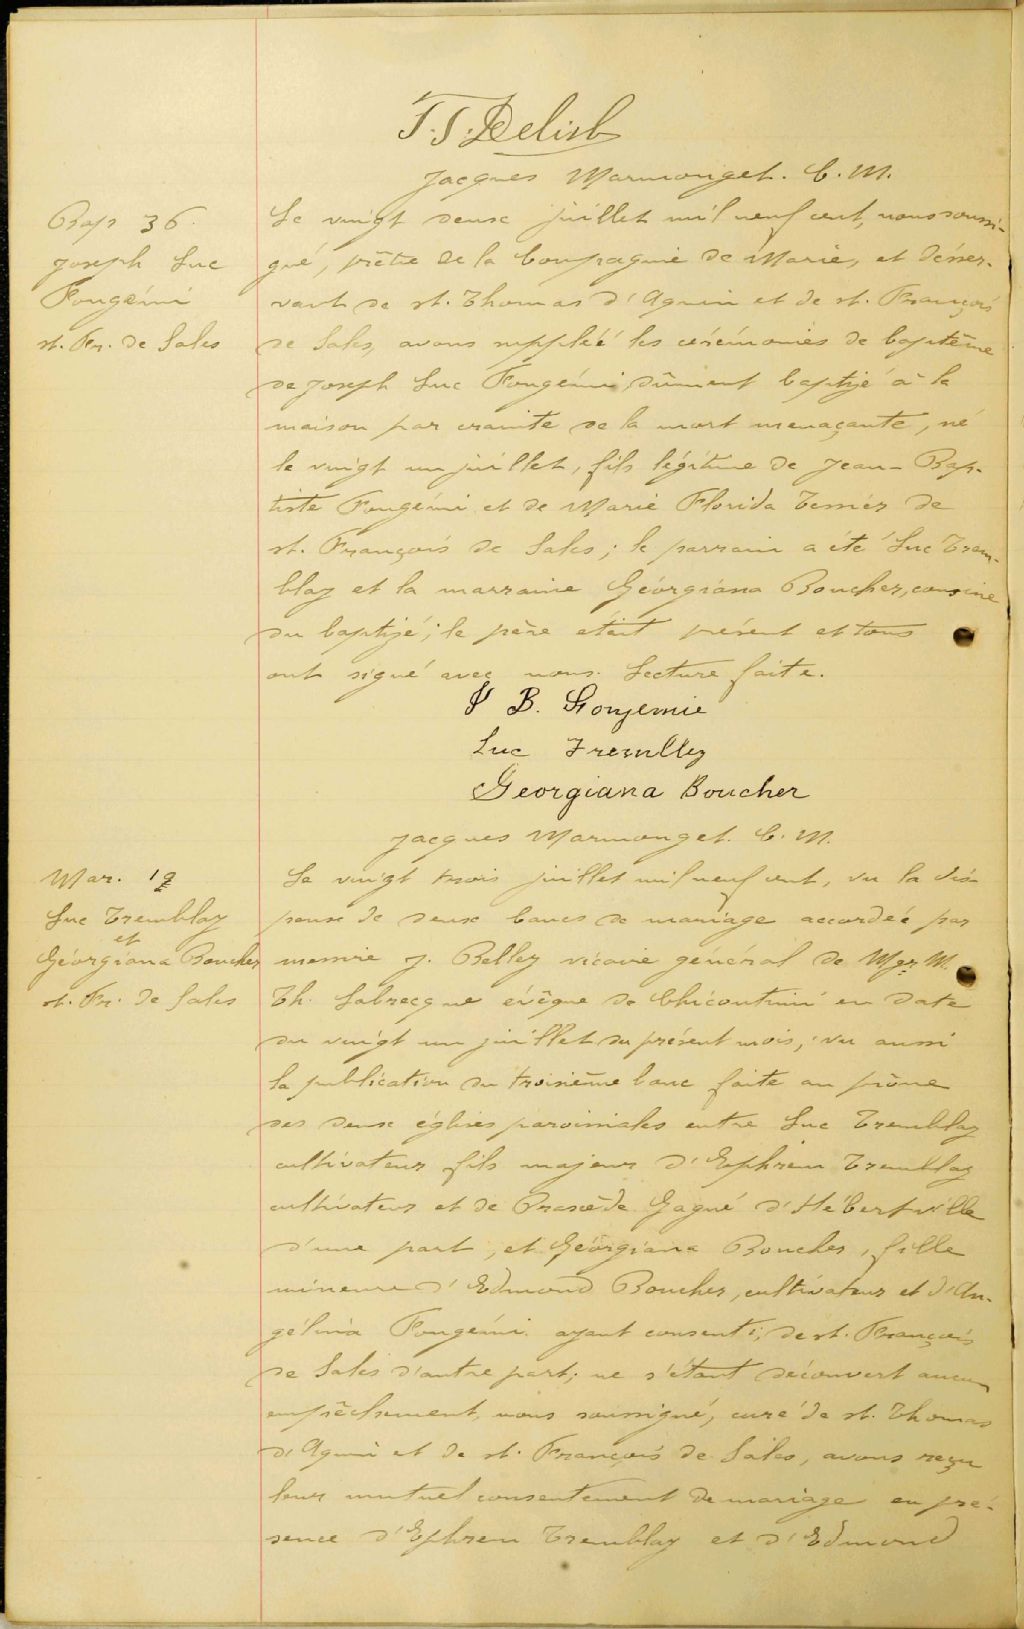 T.T. Delisle
Jacques Marmonget. C. M.
Bap 36.
Joseph Luc
Fongémi
st. Fr. de Sales
Le vingt deux juillet mil neuf cent, nous soussi-
gné, prêtre de la Compagnie de Marie, et désser-
vant de st. Thomas d'Aquin et de st. François
de Sales, avons suppléé les cérémonies de baptême
de Joseph Luc Fongémi dûment baptisé à la
maison par crainte de la mort menaçante, né
le vingt un juillet, fils légitime de Jean-Bap-
tiste Fongémi et de Marie Florida de
st. François de Sales; le parrain a été Luc Trem-
blay et la marraine Géorgiana Boucher, cousine
du baptisé; le père était présent et tous
ont signé avec nous. Lecture faite.
J B. Fonjemie
Luc Tremblay
Georgiana Boucher
Jacques Marmonget. C. M.
Mar. 12
Luc Tremblay
et
Géorgiana Boucher
st. Fr. de Sales
Le vingt trois juillet mil neuf cent, vu la dis-
pense de deux bancs de mariage accordée par
messire J. Belley vicaire général de Mgr M.
Th. Labrecque évêque de Chicoutimi en date
du vingt un juillet du présent mois, vu aussi
la publication du troisième banc faite au prône
des deux églises paroissiales entre Luc Tremblay
cultivateur fils majeur d'Ephrem Tremblay
cultivateur et de Praxède Gagné d'Hébertville
d'une part, et Géorgiana Boucher, fille
mineure d'Edmond Boucher, cultivateur et d'An-
gélina Fongémi ayant consenti, de st. François
de Sales d'autre part; ne s'étant découvert aucun
empêchement, nous soussigné, curé de st. Thomas
d'Aquin et de st. François de Sales, avons reçu
leur mutuel consentement de mariage en pré-
sence d'Ephrem Tremblay et d'Edmond